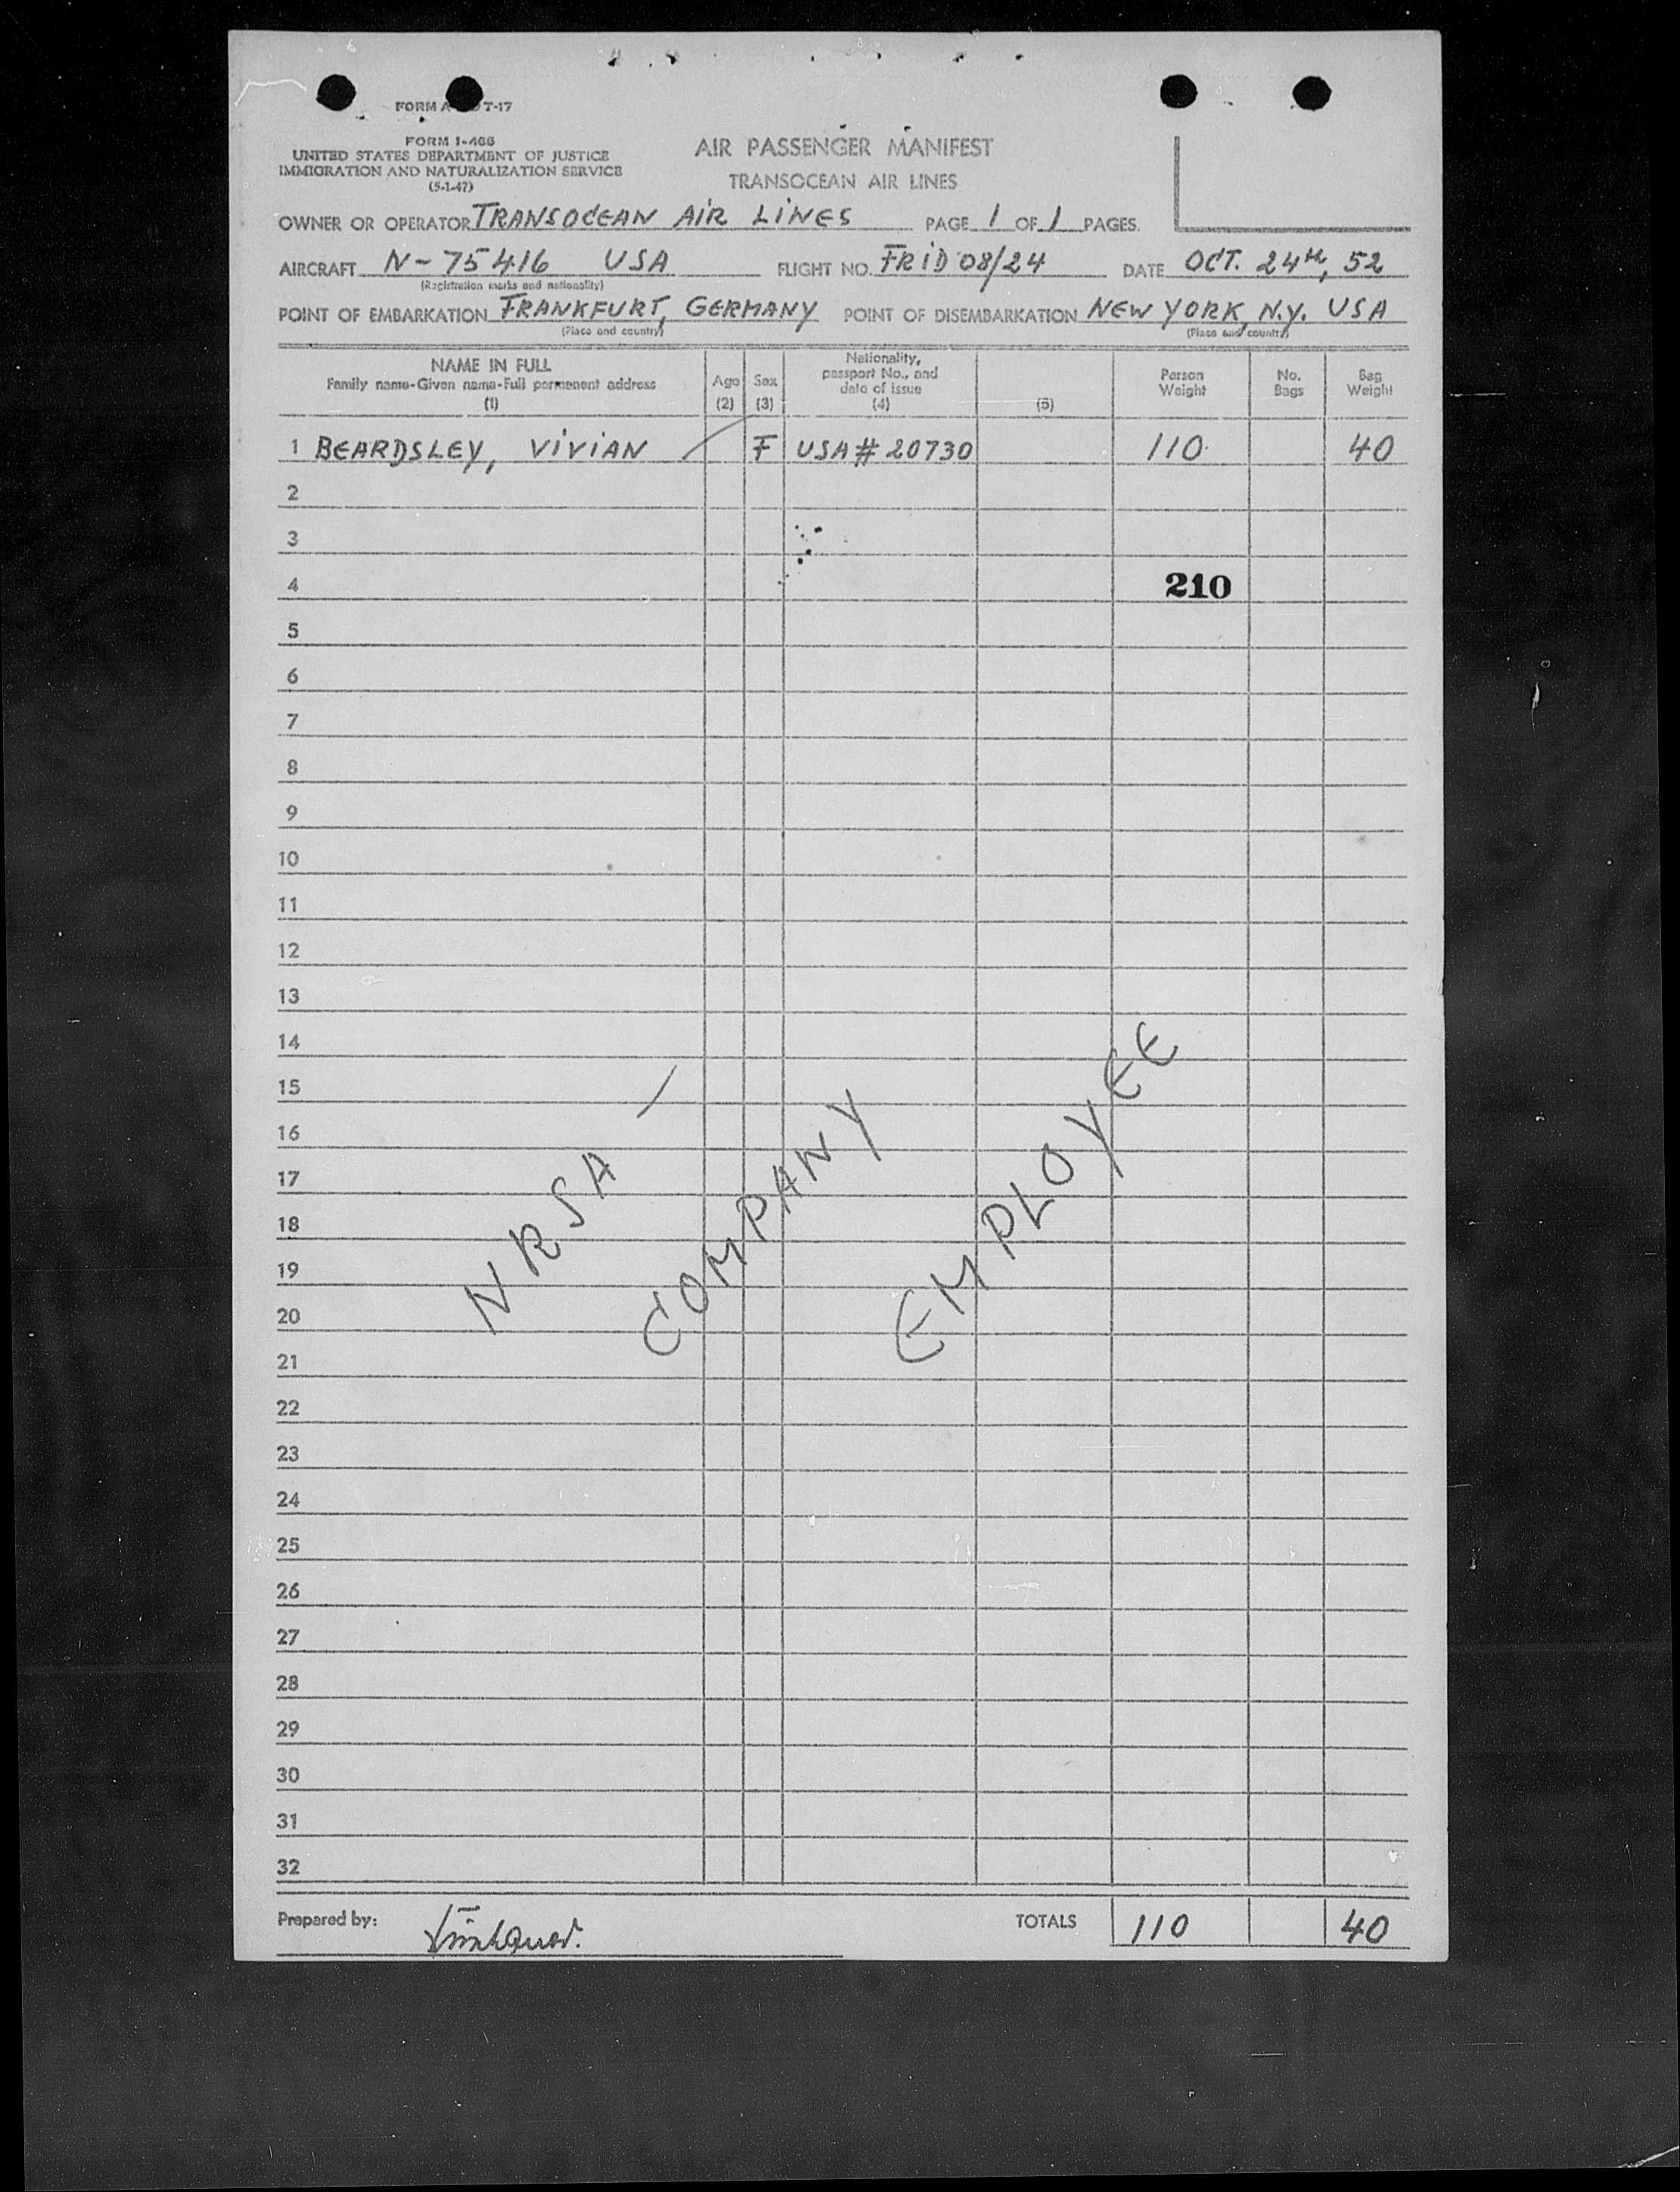 FORM 1-466
UNITED STATES DEPARTMENT OF JUSTICE
IMMIGRATION AND NATURALIZATION SERVICE
(5-1-47)
AIR PASSENGER MANIFEST
TRANSOCEAN AIR LINES
OWNER OR OPERATOR TRANSOCEAN AIR LINES PAGE 1 OF 1 PAGES.
AIRCRAFT N-75416 USA FLIGHT NO. FRID 08/24 DATE OCT. 24th, 52
(Registration marks and nationality)
POINT OF EMBARKATION FRANKFURT, GERMANY POINT OF DISEMBARKATION NEW YORK, N.Y. USA
(Place and country) (Place and country)
NAME IN FULL
Family name-Given name-Full permanent address
(1)
Age
(2)
Sex
(3)
Nationality,
passport No., and
date of issue
(4)
(5)
Person
Weight
No.
Bags
Bag
Weight
1 BEARDSLEY, VIVIAN F USA # 20730 110 40
2
3
4 210
5
6
7
8
9
10
11
12
13
14
15
16
17
18
19
20
21
22
23
24
25
26
27
28
29
30
31
32
NRSA - COMPANY EMPLOYEE
Prepared by: TOTALS 110 40